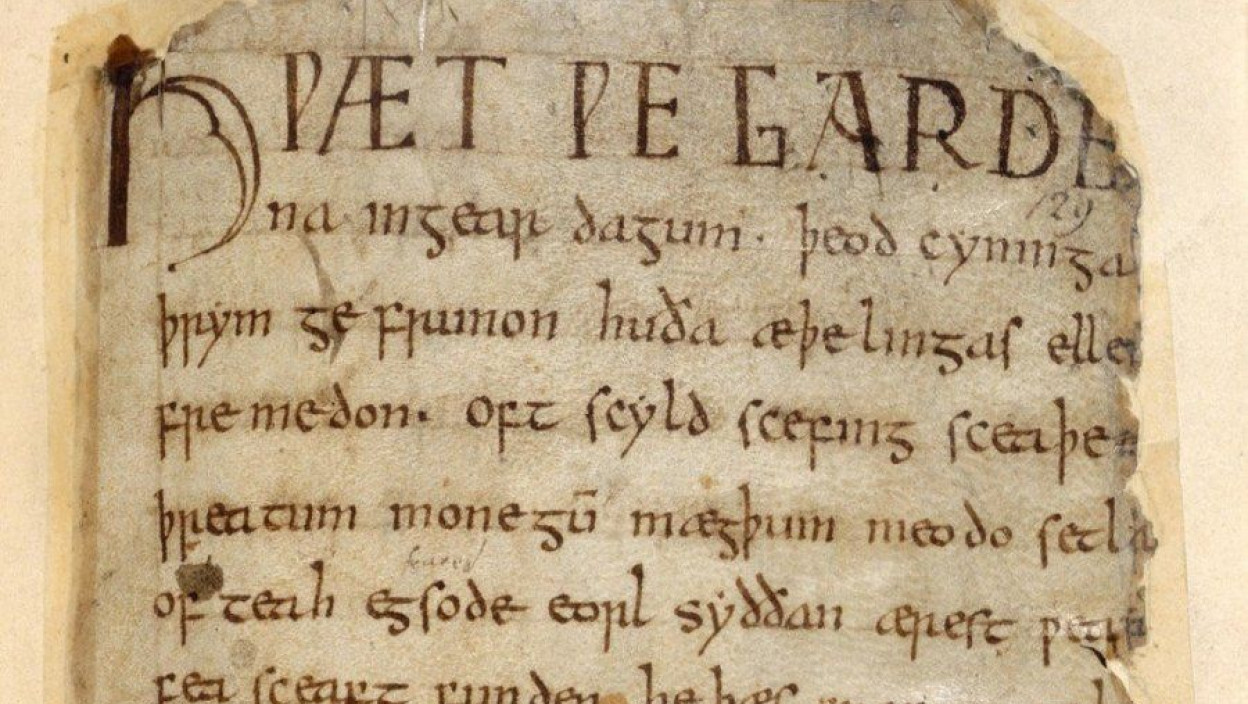 HǷÆT ǷE GARDE
129
na ingear dagum. þeod cyninga
þrym ge frunon huða æþelingas elle
fremedon. oft scyld scefing sceaþe
þreatum monegū mægþum meodo setla
of teah egsode eorl syððan ærest ƿear
fea sceaft funden he þæs